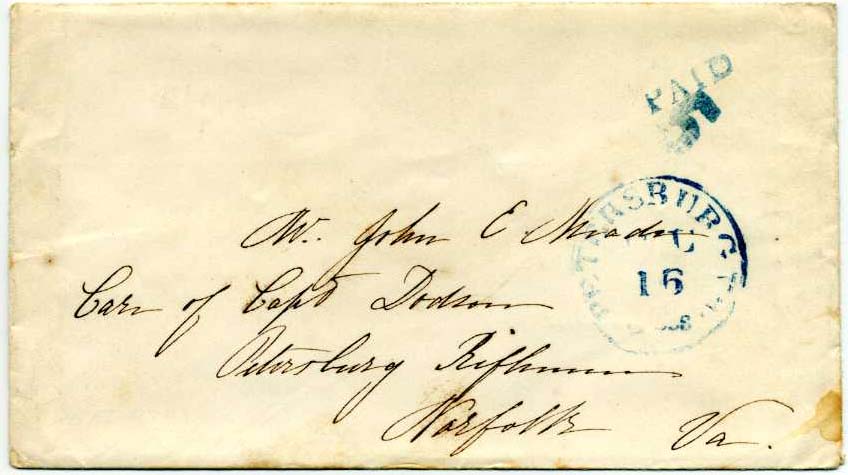 PAID
PETERSBURG
15
Mr. John E
Care of Capt Dodson
Petersburg Riflemen
Norfolk Va.